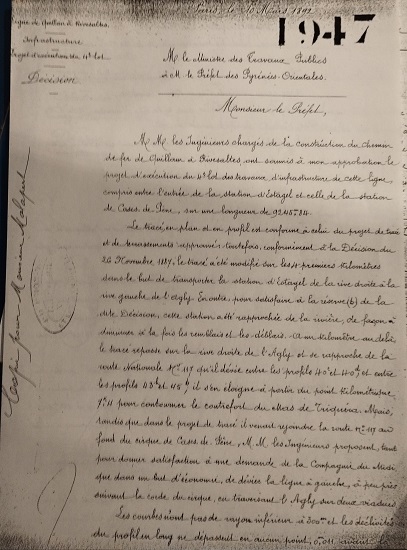 Paris, le 10 Mars 1892
1947
Ligne de Quillan à Rivesaltes
Infrastructure
Projet d'exécution du 4e lot
Décision
M. le Ministre des Travaux Publics
à M. le Préfet des Pyrénées-Orientales.
Monsieur le Préfet,
M.M. les Ingénieurs chargés de la construction du chemin
de fer de Quillan à Rivesaltes, ont soumis à mon approbation le
projet d'exécution du 4e lot des travaux d'infrastructure de cette ligne,
compris entre l'entrée de la station d'Estagel et celle de la station
de Cases de Pène, sur une longueur de 9245m84.
Le tracé en plan et en profil est conforme à celui du projet de tracé
et de terrassements approuvé; toutefois, conformément à la Décision du
26 Novembre 1887, le tracé a été modifié sur les 4 premiers kilomètres
dans le but de transporter la station d'Estagel de la rive droite à la
rive gauche de l'Agly. En outre, pour satisfaire à la réserve (b) de la
dite Décision, cette station a été rapprochée de la rivière, de façon à
diminuer à la fois les remblais et les déblais. A un kilomètre au delà,
le tracé repasse sur la rive droite de l'Agly et se rapproche de la
route Nationale No 117 qu'il dévie entre les profils 40 et 40 et entre
les profils 43 et 45, il s'en éloigne à partir du point kilométrique
7k.11 pour contourner le contrefort du Mas de Triquéra. Mais,
tandis que dans le projet de tracé il venait rejoindre la route No 117 au
fond du cirque de Cases de Pène, M.M. les Ingénieurs proposent, tant
pour donner satisfaction à une demande de la Compagnie du Midi
que dans un but d'économie, de dévier la ligne à gauche, à peu près
suivant la corde du cirque, en traversant l'Agly sur deux viaducs
Les courbes n'ont pas de rayon inférieur à 300m et les déclivités
du profil en long ne dépassent en aucun point, 0m,011
Copie pour Monsieur